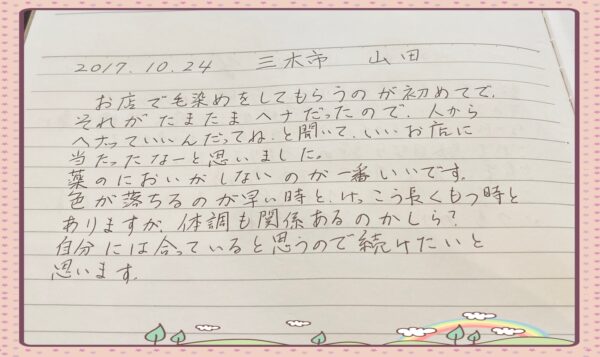 2017.10.24 三木市 山田
お店で毛染めをしてもらうのが初めてで、
それがたまたまヘナだったので、人から
ヘナっていいんだってね、と聞いて、いいお店に
当たったなーと思いました。
薬のにおいがしないのが一番いいです。
色が落ちるのが早い時と、けっこう長くもつ時と
ありますが、体調も関係あるのかしら?
自分には合っていると思うので続けたいと
思います。